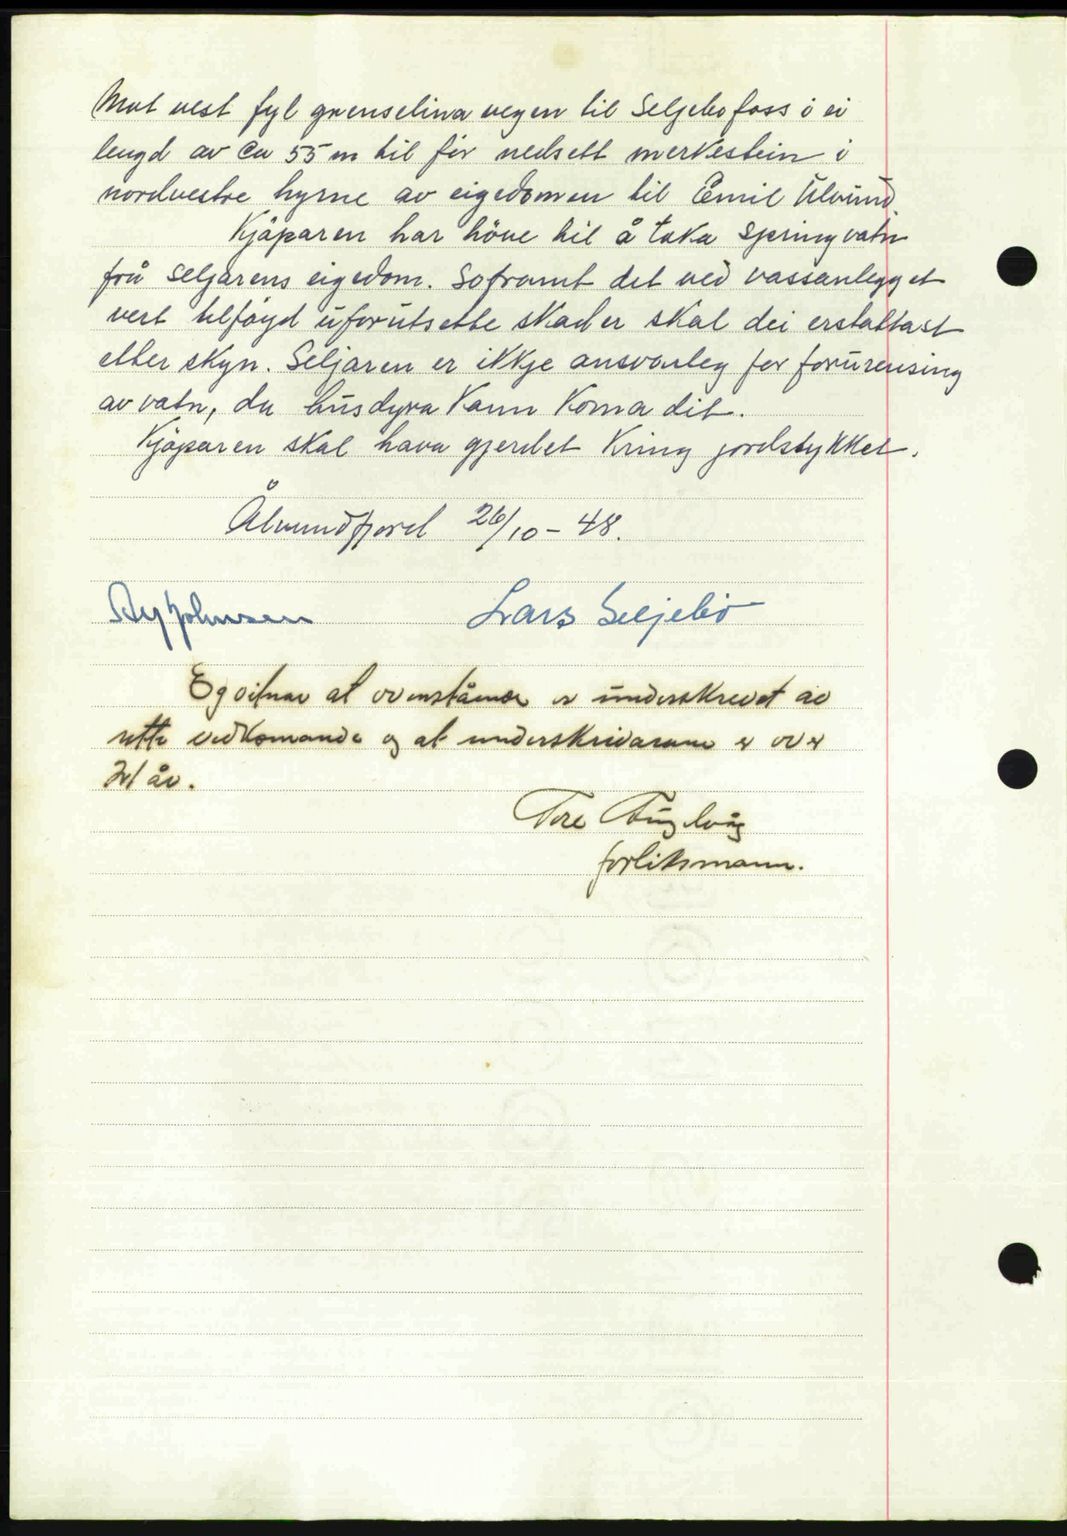 Mot vest fyl grenselina vegen til Seljebofoss i ei
lengd av Ca 55 m til før nedsett merkestein i
nordvestre hyrne av eigedomen til Emil Ulvund.
Kjøparen har höve til å taka springvatn
frå Seljarens eigedom. Soframt det ved vassanlegget
vert tilføyd uforutsette skader skal dei erstattast
etter skyn. Seljaren er ikkje ansvarleg for forurensing
av vatn, da husdyra kann koma dit.
Kjøparen skal hava gjerdet kring jordstykket.
Ålvundfjord 26/10 - 48.
Johnsen Lars Seljebö
Eg vitnar at ovenståande er underskrevet av
rette vedkomande og at underskrivarane er over
21 år.
Tore Fuglvåg
forliksmann.